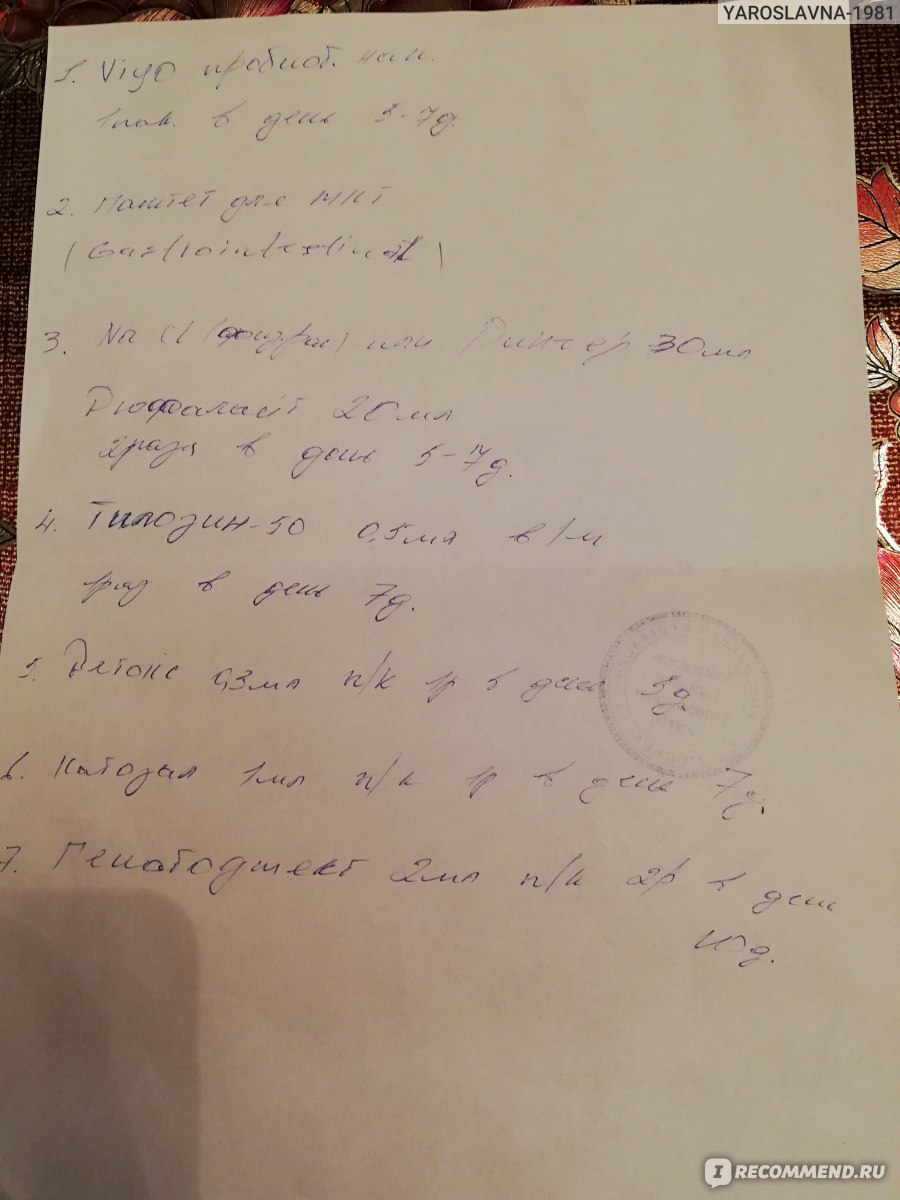 YAROSLAVNA-1981
1. Viyo пробиот. нап.
1 пак. в день 5-7д.
2. Паштет для ЖКТ
(Gastrointestinal)
3. Na Cl (физр-р) или Рингер 30мл
Дюфалайт 20мл
в день 5-7д.
4. Тилозин-50 0,5мл в/м
1раз в день 7д.
5. Детокс 0,3мл п/к 1р в день 5д.
6. Катозал 1мл п/к 1р в день 7д.
7. Гепатоджект 2мл п/к 2р в день
10д.
IRECOMMEND.RU